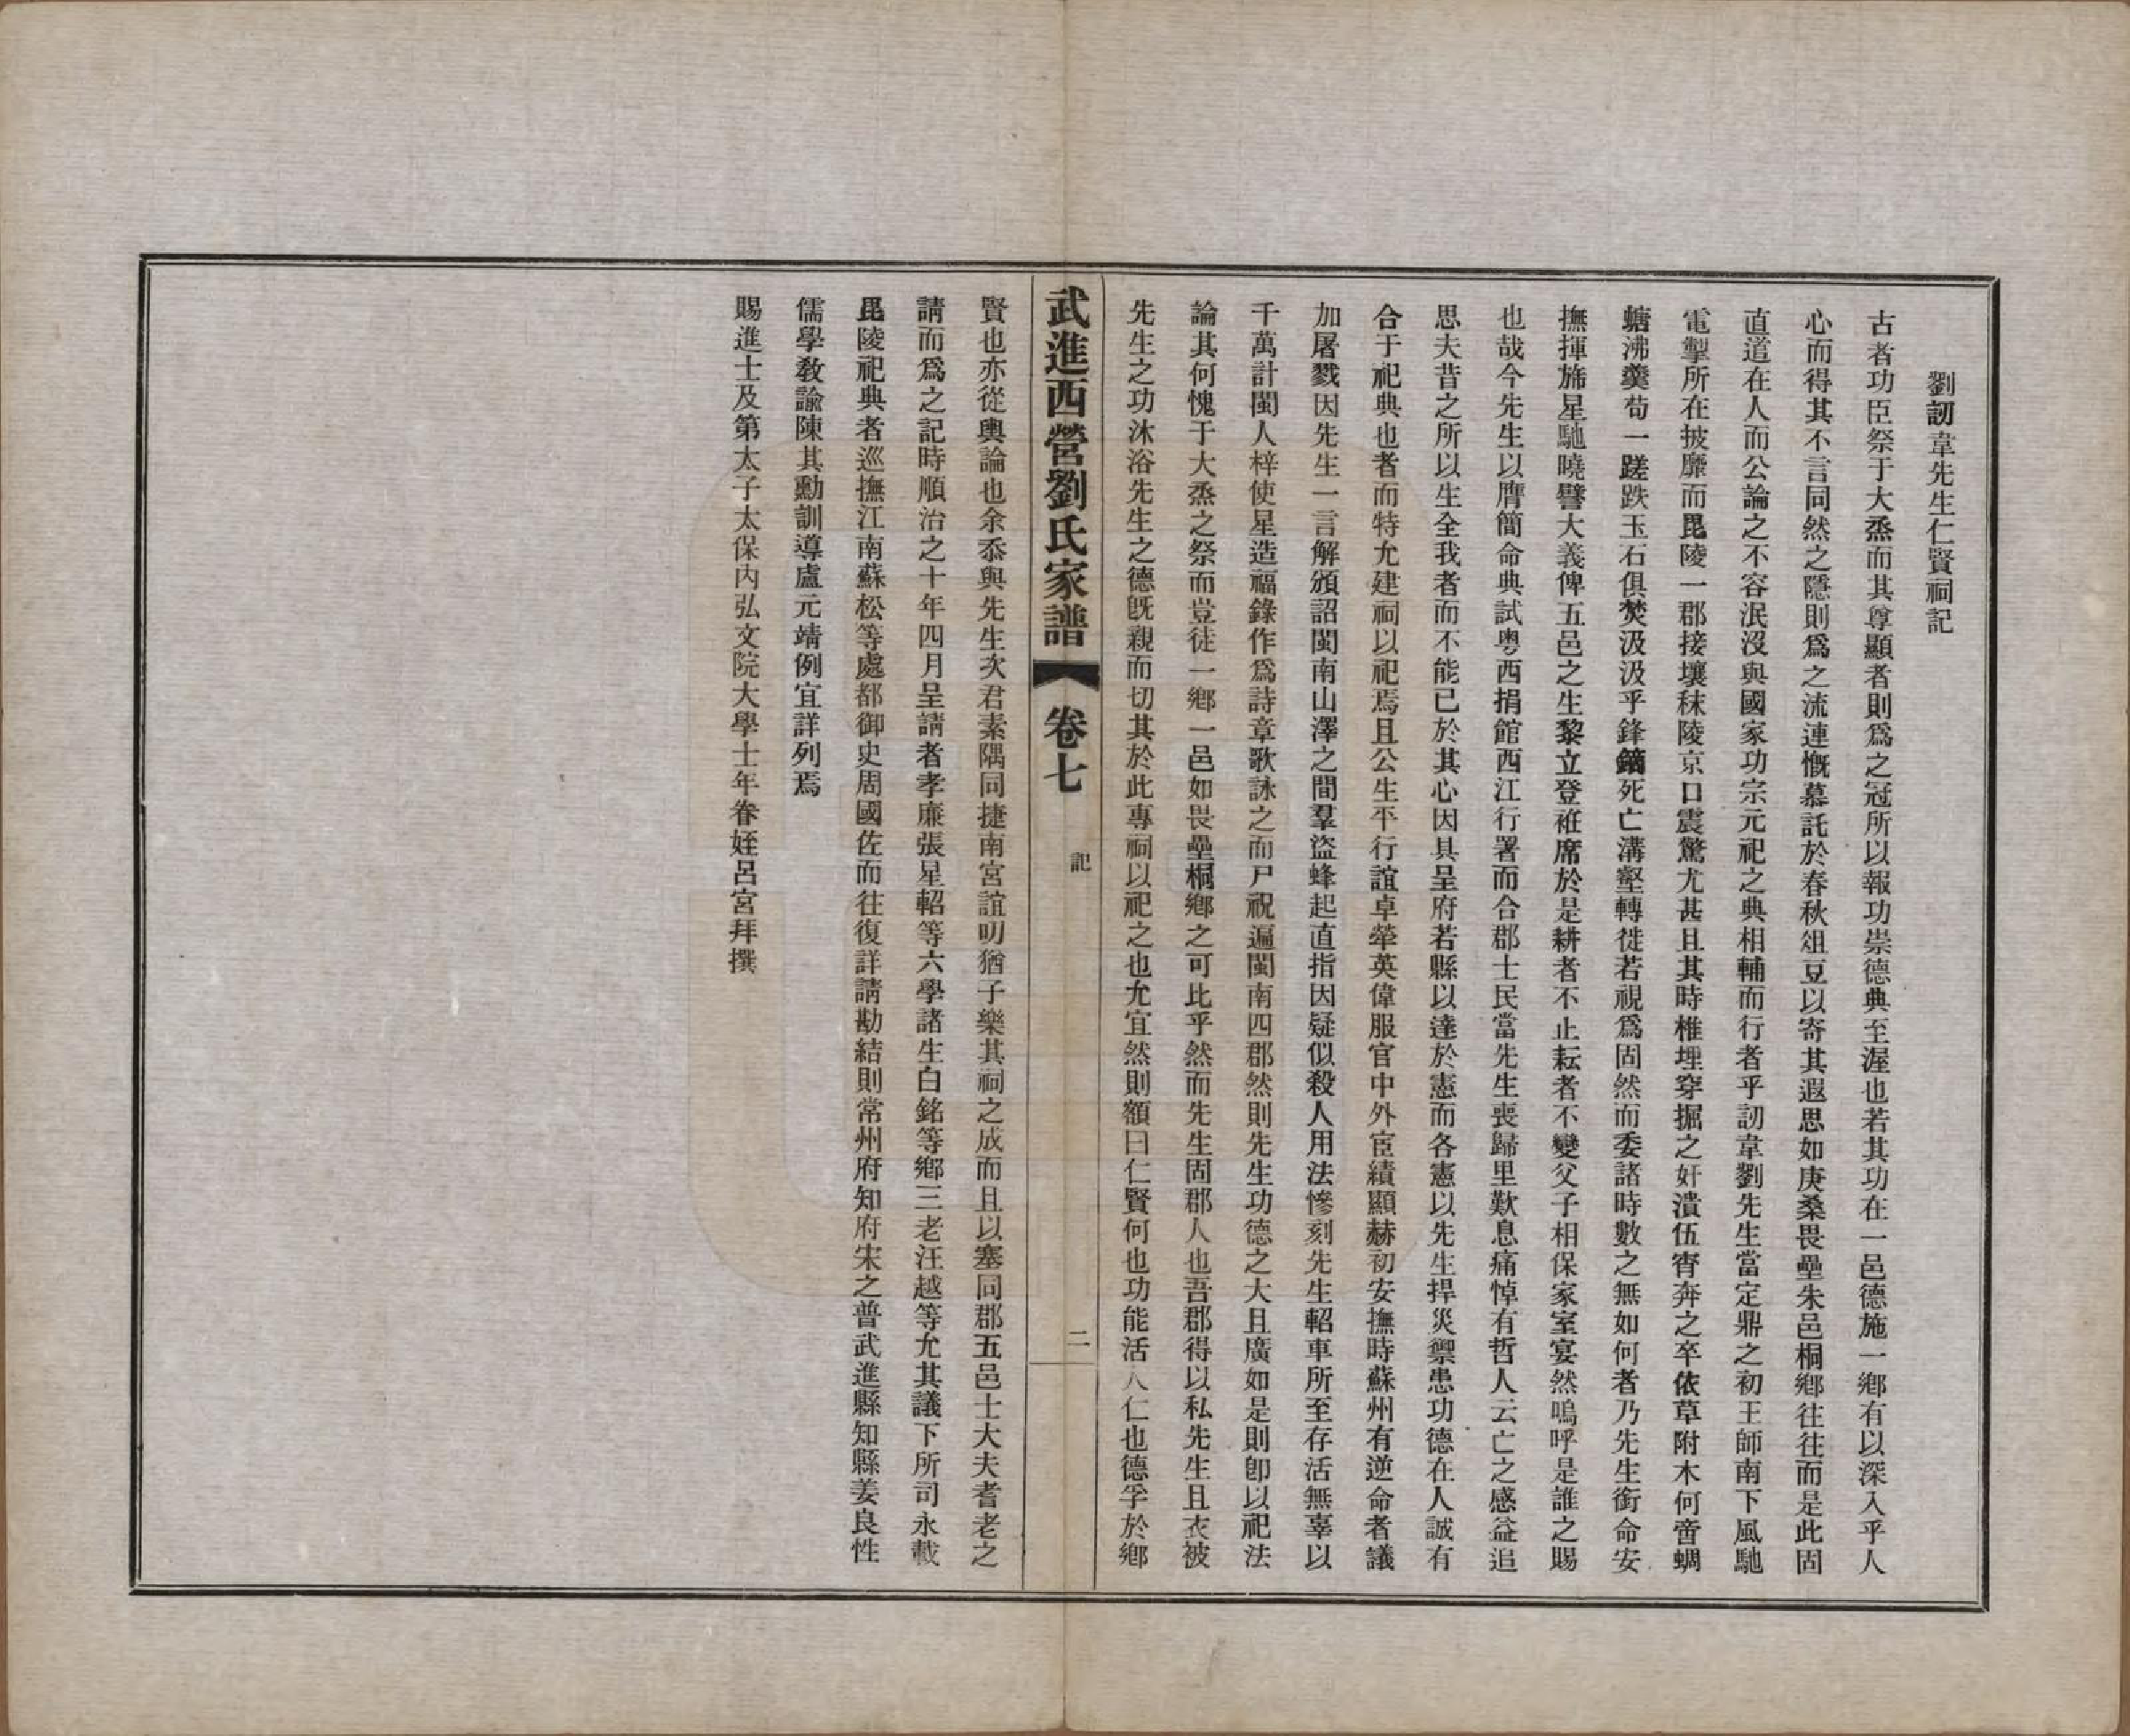 劉訒韋先生仁賢祠記
古者功臣祭于大烝而其尊顯者則爲之冠所以報功崇德典至渥也若其功在一邑德施一鄉有以深入乎人
心而得其不言同然之隱則爲之流連慨慕託於春秋俎豆以寄其遐思如庚桑畏壘朱邑桐鄉往往而是此固
直道在人而公論之不容泯沒與國家功宗元祀之典相輔而行者乎訒韋劉先生當定鼎之初王師南下風馳
電掣所在披靡而毘陵一郡接壤秣陵京口震驚尤甚且其時椎埋穿掘之奸潰伍宵奔之卒依草附木何啻蜩
螗沸羹苟一蹉跌玉石俱焚汲汲乎鋒鏑死亡溝壑轉徙若視爲固然而委諸時數之無如何者乃先生銜命安
撫揮旆星馳曉譬大義俾五邑之生黎立登袵席於是耕者不止耘者不變父子相保家室宴然嗚呼是誰之賜
也哉今先生以膺簡命典試粤西捐館西江行署而合郡士民當先生喪歸里歎息痛悼有哲人云亡之感益追
思夫昔之所以生全我者而不能已於其心因具呈府若縣以達於憲而各憲以先生捍災禦患功德在人誠有
合于祀典也者而特允建祠以祀焉且公生平行誼卓犖英偉服官中外宦績顯赫初安撫時蘇州有逆命者議
加屠戮因先生一言解頒詔閩南山澤之間羣盜蜂起直指因疑似殺人用法慘刻先生軺車所至存活無辜以
千萬計閩人梓使星造福錄作爲詩章歌詠之而尸祝遍閩南四郡然則先生功德之大且廣如是則卽以祀法
論其何愧于大烝之祭而豈徒一鄉一邑如畏壘桐鄉之可比乎然而先生固郡人也吾郡得以私先生且衣被
先生之功沐浴先生之德旣親而切其於此專祠以祀之也尤宜然則額曰仁賢何也功能活人仁也德孚於鄉
武進西營劉氏家譜 卷七 記 二
賢也亦從輿論也余忝與先生次君素隅同捷南宮誼叨猶子樂其祠之成而且以塞同郡五邑士大夫耆老之
請而爲之記時順治之十年四月呈請者孝廉張星軺等六學諸生白銘等鄉三老汪越等允其議下所司永載
毘陵祀典者巡撫江南蘇松等處都御史周國佐而往復詳請勘結則常州府知府宋之普武進縣知縣姜良性
儒學敎諭陳其勳訓導盧元靖例宜詳列焉
賜進士及第太子太保內弘文院大學士年眷姪呂宮拜撰